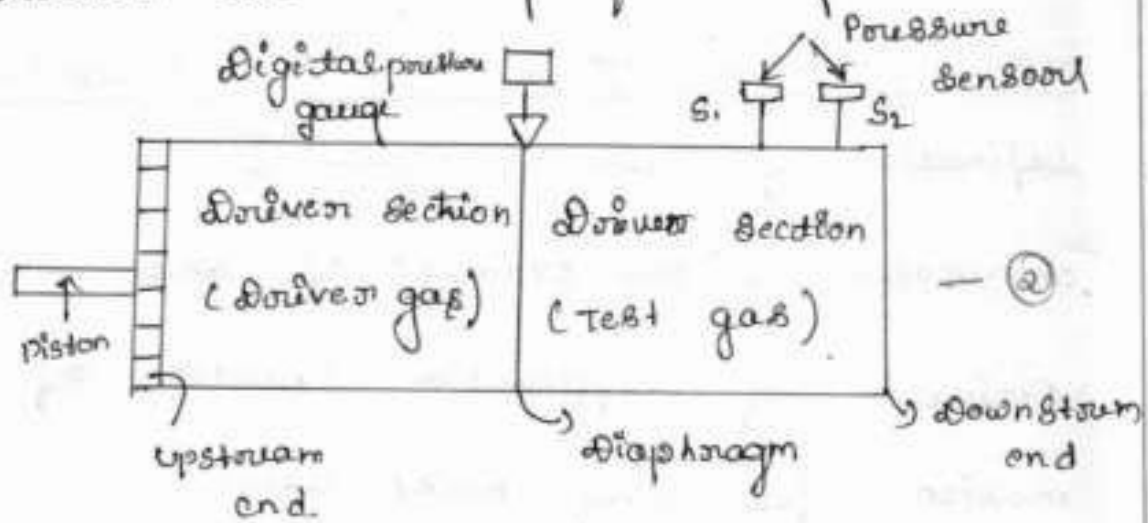 Digital pressure
gauge
Pressure
Sensors
S1
S2
Driver Section
(Driver gas)
Driven Section
(Test gas)
— ②
piston
upstream
end.
Diaphragm
Downstream
end